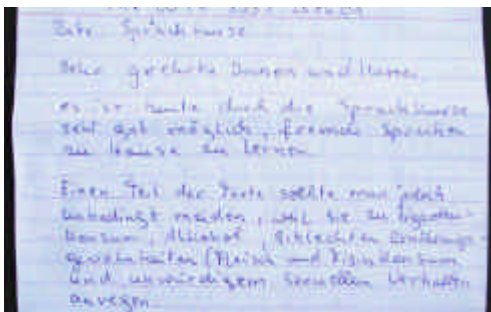 Sehr geehrte Damen und Herren,
es ist heute durch die Sprachkurse
sehr gut möglich, fremde Sprachen
zu hause zu lernen.
Einen Teil der Texte sollte man jedoch
unbedingt meiden, weil sie zu
konsum, Alkohol, schlechten Ernährungs-
gewohnheiten (Fleisch und Fischkonsum
und unwürdigem sexuellen Verhalten
anregen.